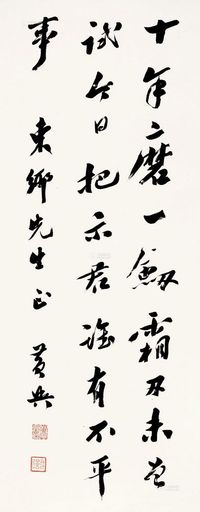 十年磨一劍霜刃未曾
試今日把示君誰有不平
事 東鄉先生正 黃興